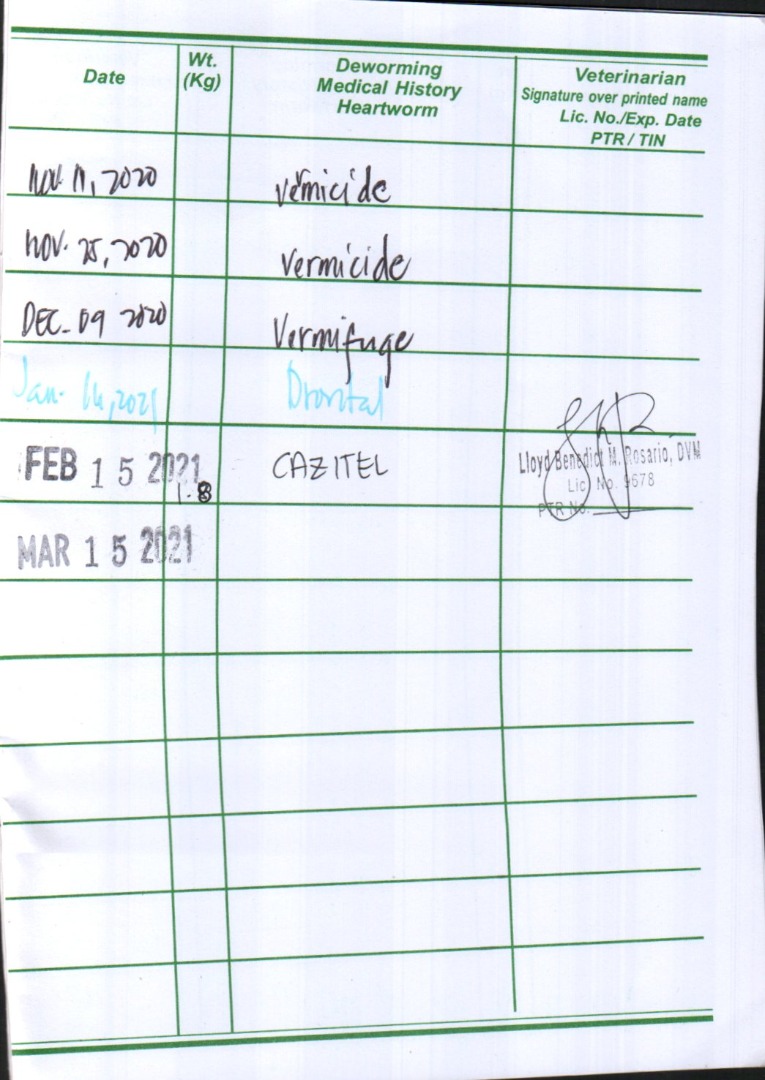 Date Wt. (Kg) Deworming Medical History Heartworm Veterinarian Signature over printed name Lic. No./Exp. Date PTR / TIN
Nov 11, 2020 vermicide
NOV. 25, 2020 vermicide
DEC. 09 2020 Vermifuge
Jan. 14, 2021 Drontal
FEB 15 2021 1.8 CAZITEL Lloyd Benedict M. Rosario, DVM
Lic No. 9678
PTR No.
MAR 15 2021